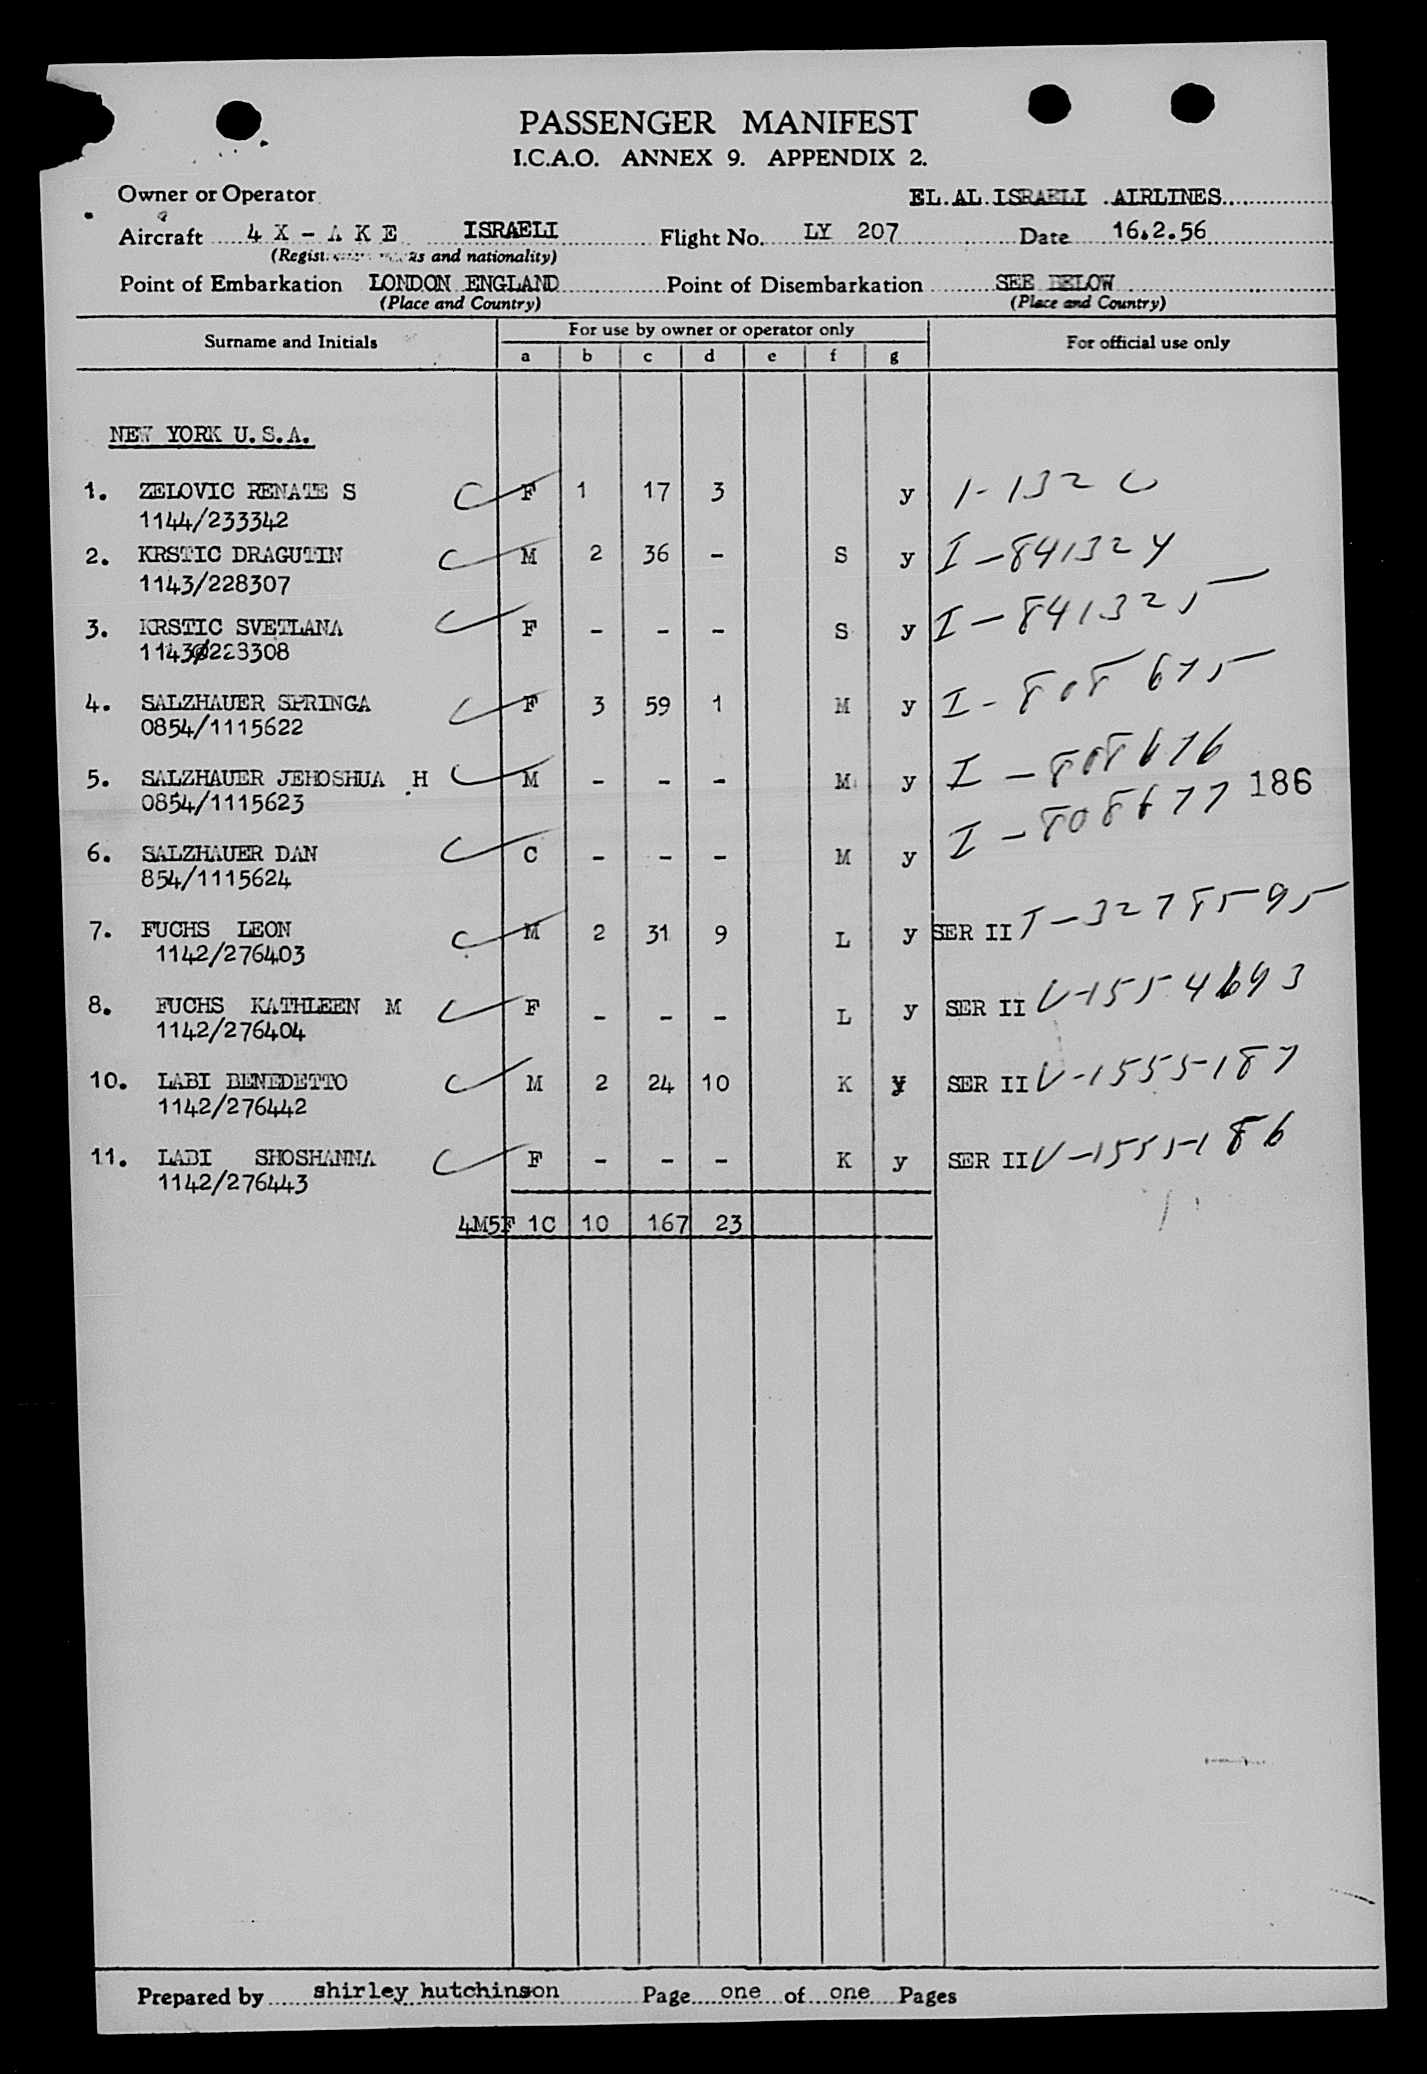 PASSENGER MANIFEST
I.C.A.O. ANNEX 9. APPENDIX 2.
Owner or Operator EL.AL.ISRAELI .AIRLINES
Aircraft 4 X - A K E ISRAELI Flight No. LY 207 Date 16.2.56
(Regist and nationality)
Point of Embarkation LONDON ENGLAND Point of Disembarkation SEE BELOW
(Place and Country) (Place and Country)
Surname and Initials For use by owner or operator only For official use only
a b c d e f g
NEW YORK U.S.A.
1. ZELOVIC RENATE S C F 1 17 3 y
1144/233342
2. KRSTIC DRAGUTIN C M 2 36 - S y I-841324
1143/228307
3. KRSTIC SVETLANA C F - - - S y I-841325
1143Ø228308
4. SALZHAUER SPRINGA C F 3 59 1 M y I-808675
0854/1115622
5. SALZHAUER JEHOSHUA H C M - - - M y I-808676
0854/1115623 186
6. SALZHAUER DAN C C - - - M y I-808677
854/1115624
7. FUCHS LEON C M 2 31 9 L y SER II I-3278595
1142/276403
8. FUCHS KATHLEEN M C F - - - L y SER II V-1554693
1142/276404
10. LABI BENEDETTO C M 2 24 10 K y SER II V-1555187
1142/276442
11. LABI SHOSHANNA C F - - - K y SER II V-1555186
1142/276443
4M5F 1C 10 167 23
Prepared by shirley hutchinson Page one of one Pages